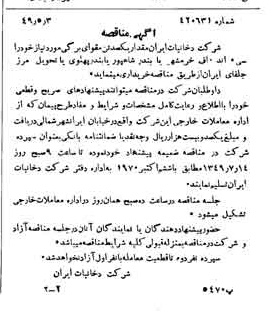 شماره ۴۲۰۶۳۱ ۴۹/۵/۳
آگهی مناقصه
شرکت دخانیات ایران مقدار یکصد تن مقوای برگی مورد نیاز خود را
سی ‌اند ‌اف خرمشهر یا بندر شاهپور یا بندر پهلوی یا تحویل مرز
جلفای ایران از طریق مناقصه خریداری مینماید
داوطلبان شرکت در مناقصه میتوانند پیشنهادهای صریح و قطعی
خود را با اطلاع و رعایت کامل مشخصات و شرایط و مفاد طرح پیمان که از
اداره معاملات خارجی این شرکت واقع در خیابان ایرانشهر شمالی دریافت
و مبلغ یکصد و بیست هزار ریال وجه نقد یا ضمانتنامه بانکی بعنوان سپرده
شرکت در مناقصه ضمیمه پیشنهاد خود نموده تا ساعت ۹ صبح روز
۱۳۴۹/۷/۱۴ مطابق با ششم اکتبر ۱۹۷۰ به اداره دفتر شرکت دخانیات
ایران تسلیم نمایند.
جلسه مناقصه در ساعت ده صبح همان روز در اداره معاملات خارجی
تشکیل میشود
حضور پیشنهاد دهندگان یا نمایندگان آنان در جلسه مناقصه آزاد
و شرکت در مناقصه بمنزله قبولی کلیه شرایط مناقصه میباشد
سپرده نفر دوم تا قطعیت معامله با نفر اول آزاد نخواهد شد.
شرکت دخانیات ایران
پ‌۵۴۷۰ ۲-۲